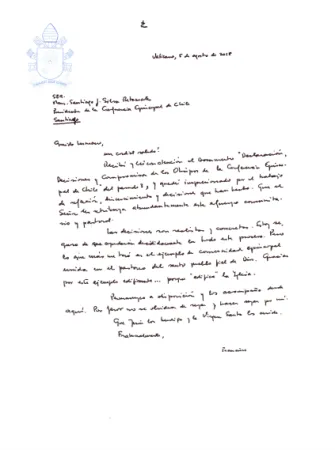 Vaticano, 5 de agosto de 2018
Mons. Santiago J. Silva Retamales
Presidente de la Conferencia Episcopal de Chile
Santiago
Querido hermano,
un cordial saludo.
Recibí y leí con atención el documento "Declaración,
Decisiones y Compromisos de los Obispos de la Conferencia Episco-
pal de Chile" del pasado 3, y quedé impresionado por el trabajo
de reflexión, discernimiento y decisiones que han hecho. Que el
Señor les retribuya abundantemente este esfuerzo comunita-
rio y pastoral.
Las decisiones son realistas y concretas. Estoy se-
guro de que ayudarán decididamente en todo este proceso. Pero
lo que más me tocó es el ejemplo de comunidad episcopal
unida en el pastoreo del santo pueblo fiel de Dios. Gracias
por este ejemplo edificante... porque "edifica" la Iglesia.
Permanezco a disposición y los acompaño desde
aquí. Por favor no se olviden de rezar y hacer rezar por mí.
Que Jesús los bendiga y la Virgen Santa los cuide.
Fraternalmente,
Francisco